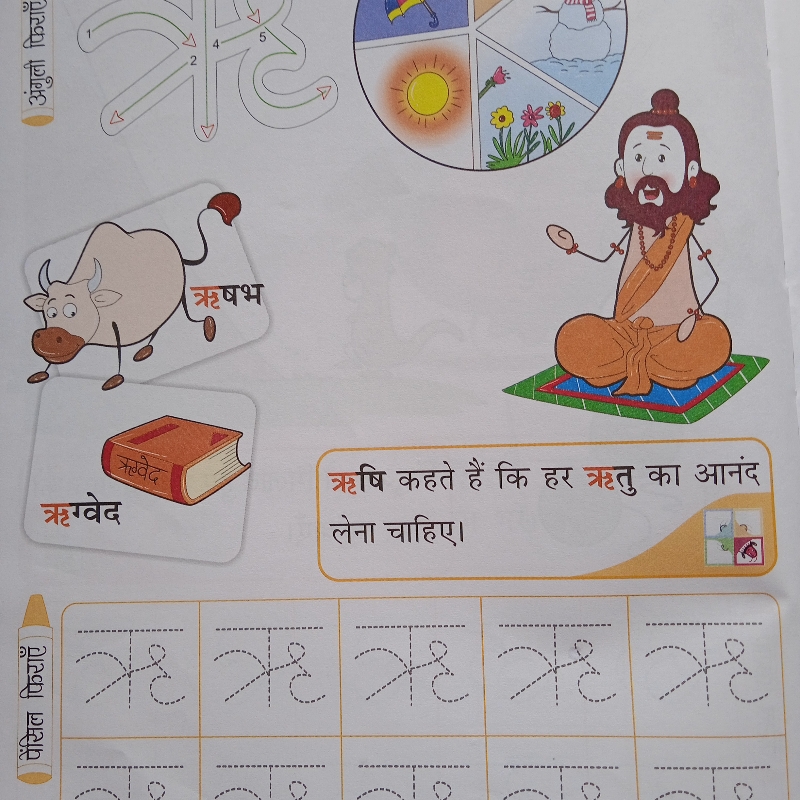 अंगुली फिराएँ
1
2
4
5
ऋषभ
ऋग्वेद
ऋग्वेद
ऋषि कहते हैं कि हर ऋतु का आनंद
लेना चाहिए।
पेंसिल फिराएँ
ऋ ऋ ऋ ऋ ऋ